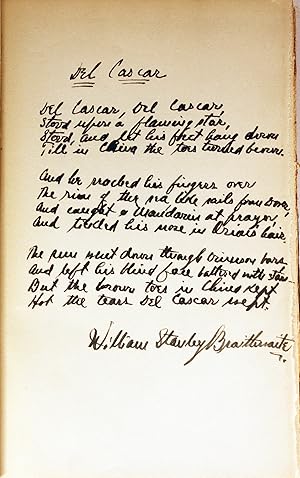 Del Cascar
Del Cascar, Del Cascar,
Stood upon a flaming star,
Stood, and let his feet hang down
Till in China the toes turned brown.
And he reached his fingers over
The rim of the sea, like sails from Dover,
And caught a Mandarin at prayer,
And tickled his nose in Orion's hair.
The sun went down through crimson bars,
And left his blind face battered with stars—
But the brown toes in China kept
Hot the tears Del Cascar wept.
William Stanley Braithwaite